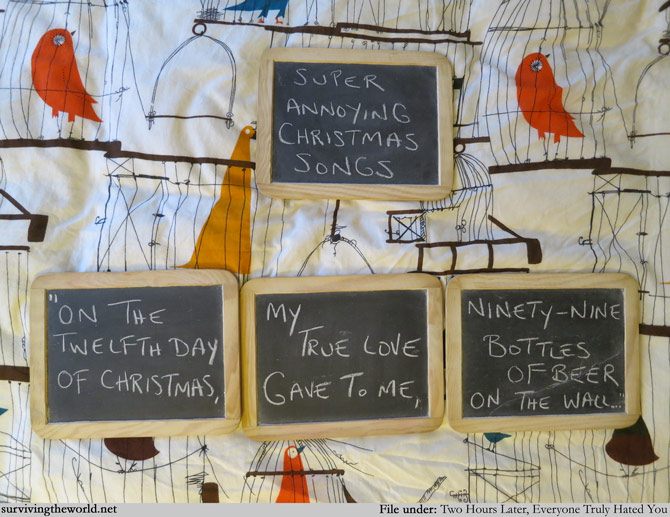 SUPER
ANNOYING
CHRISTMAS
SONGS
"ON THE
TWELFTH DAY
OF CHRISTMAS,
MY
TRUE LOVE
GAVE TO ME,
NINETY-NINE
BOTTLES
OF BEER
ON THE WALL..."
survivingtheworld.net
File under: Two Hours Later, Everyone Truly Hated You